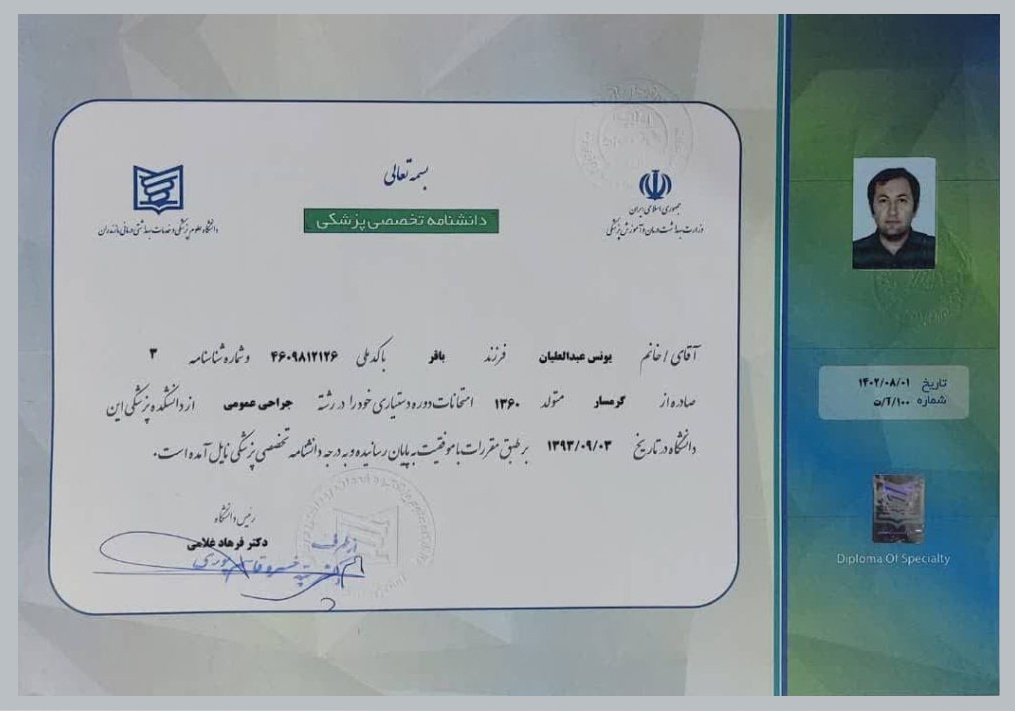 بسمه تعالی
دانشنامه تخصصی پزشکی
جمهوری اسلامی ایران
وزارت بهداشت درمان و آموزش پزشکی
دانشگاه علوم پزشکی و خدمات بهداشتی درمانی مازندران
آقای / خانم یونس عبدالعلیان فرزند باقر با کد ملی ۴۶۰۹۸۱۲۱۲۶ و شماره شناسنامه ۳
صادره از گرمسار متولد ۱۳۶۰ امتحانات دوره دستیاری خود را در رشته جراحی عمومی از دانشکده پزشکی این
دانشگاه در تاریخ ۱۳۹۳/۰۹/۰۳ بر طبق مقررات با موفقیت به پایان رسانیده و به درجه دانشنامه تخصصی پزشکی نایل آمده است.
رئیس دانشگاه
دکتر فرهاد غلامی
از طرف
تاریخ ۱۴۰۲/۰۸/۰۱
شماره ۱۰۰/آ/ت
Diploma Of Specialty